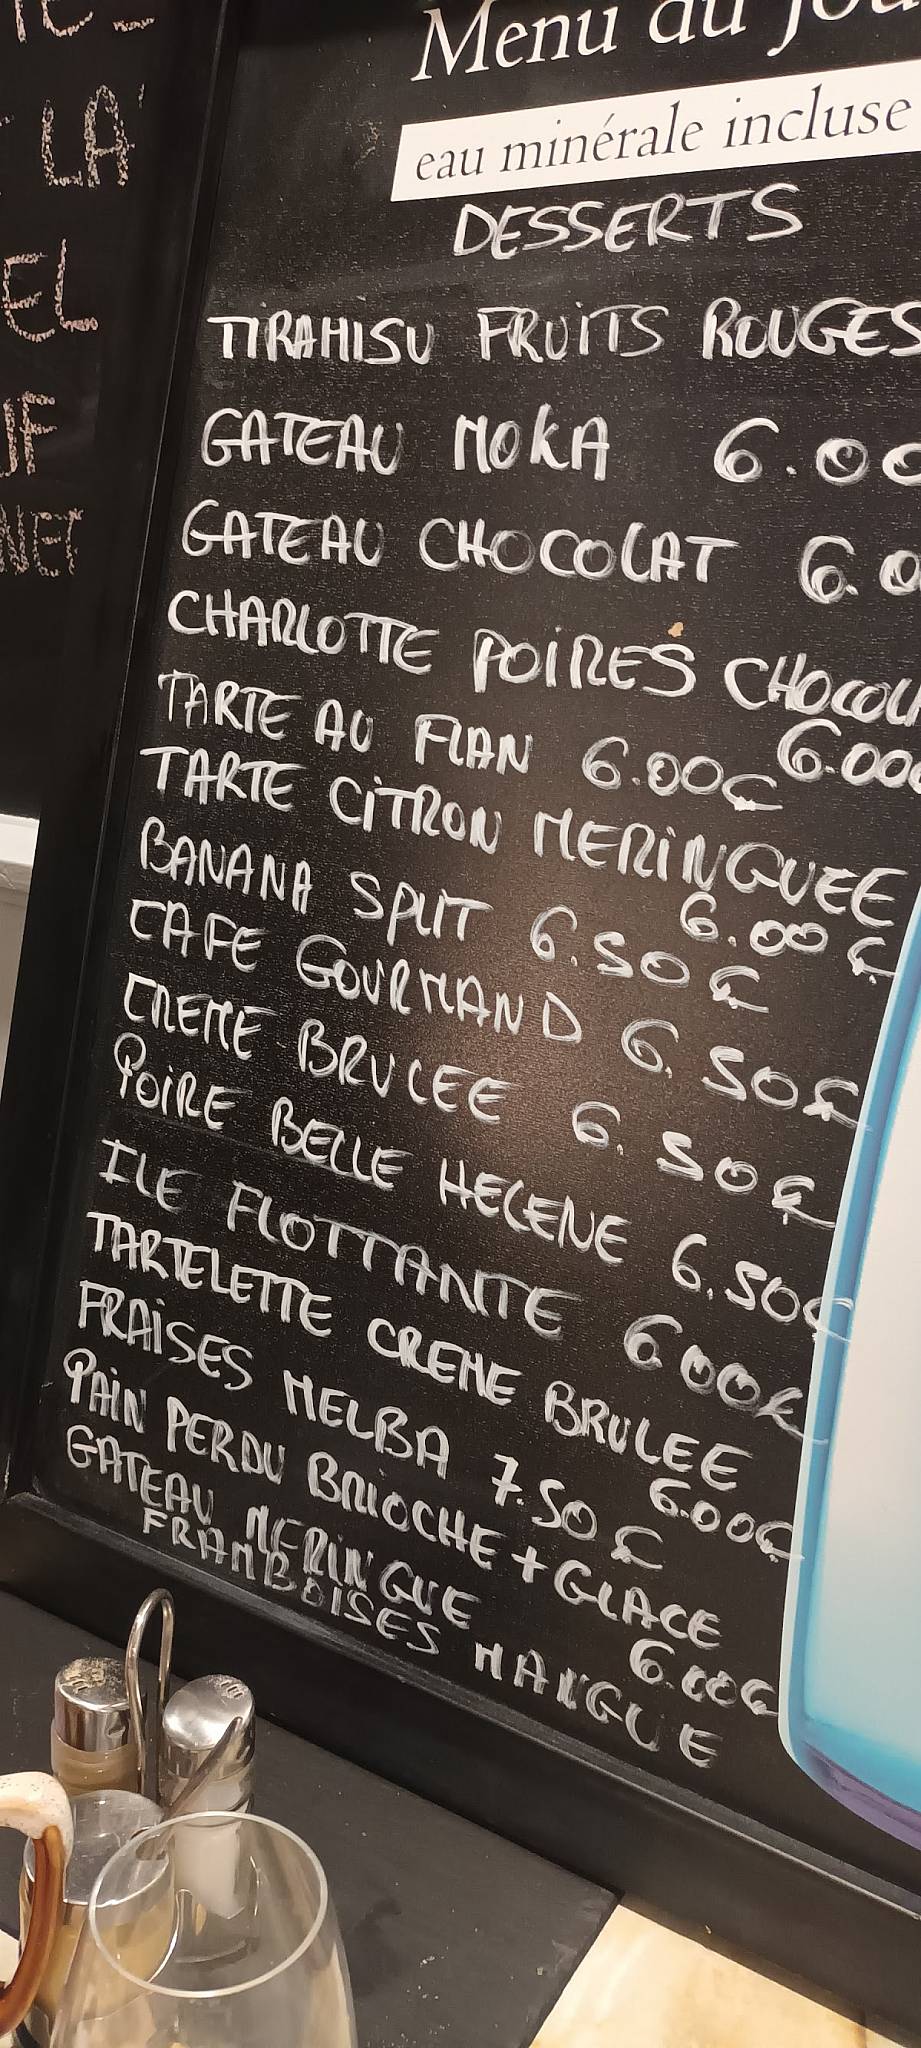 LA
EL
Menu du Jou
eau minérale incluse
DESSERTS
TIRAMISU FRUITS ROUGES
GATEAU MOKA 6.00
GATEAU CHOCOLAT 6.0
CHARLOTTE POIRES CHOCOL
6.00€
TARTE AU FLAN 6.00€
TARTE CiTRON MERiNGUEE
6.00€
BANANA SPLIT 6.50€
CAFE GOURMAND 6.50€
CREME BRULEE 6.50€
POiRE BELLE HELENE 6.50€
ILE FLOTTANTE 6.00€
TARTELETTE CREME BRULEE
6.00€
FRAiSES MELBA 7.50€
PAiN PERDU BRIOCHE + GLACE
6.00€
GATEAU MERiNGUE
FRAMBOISES MANGUE